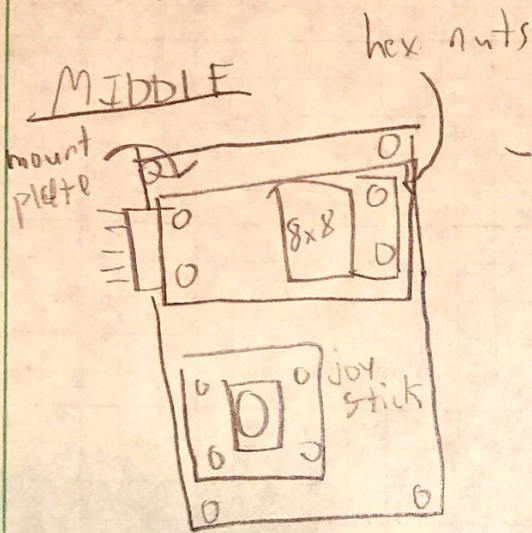 hex nuts
MIDDLE
mount
plate
8x8
joy
stick